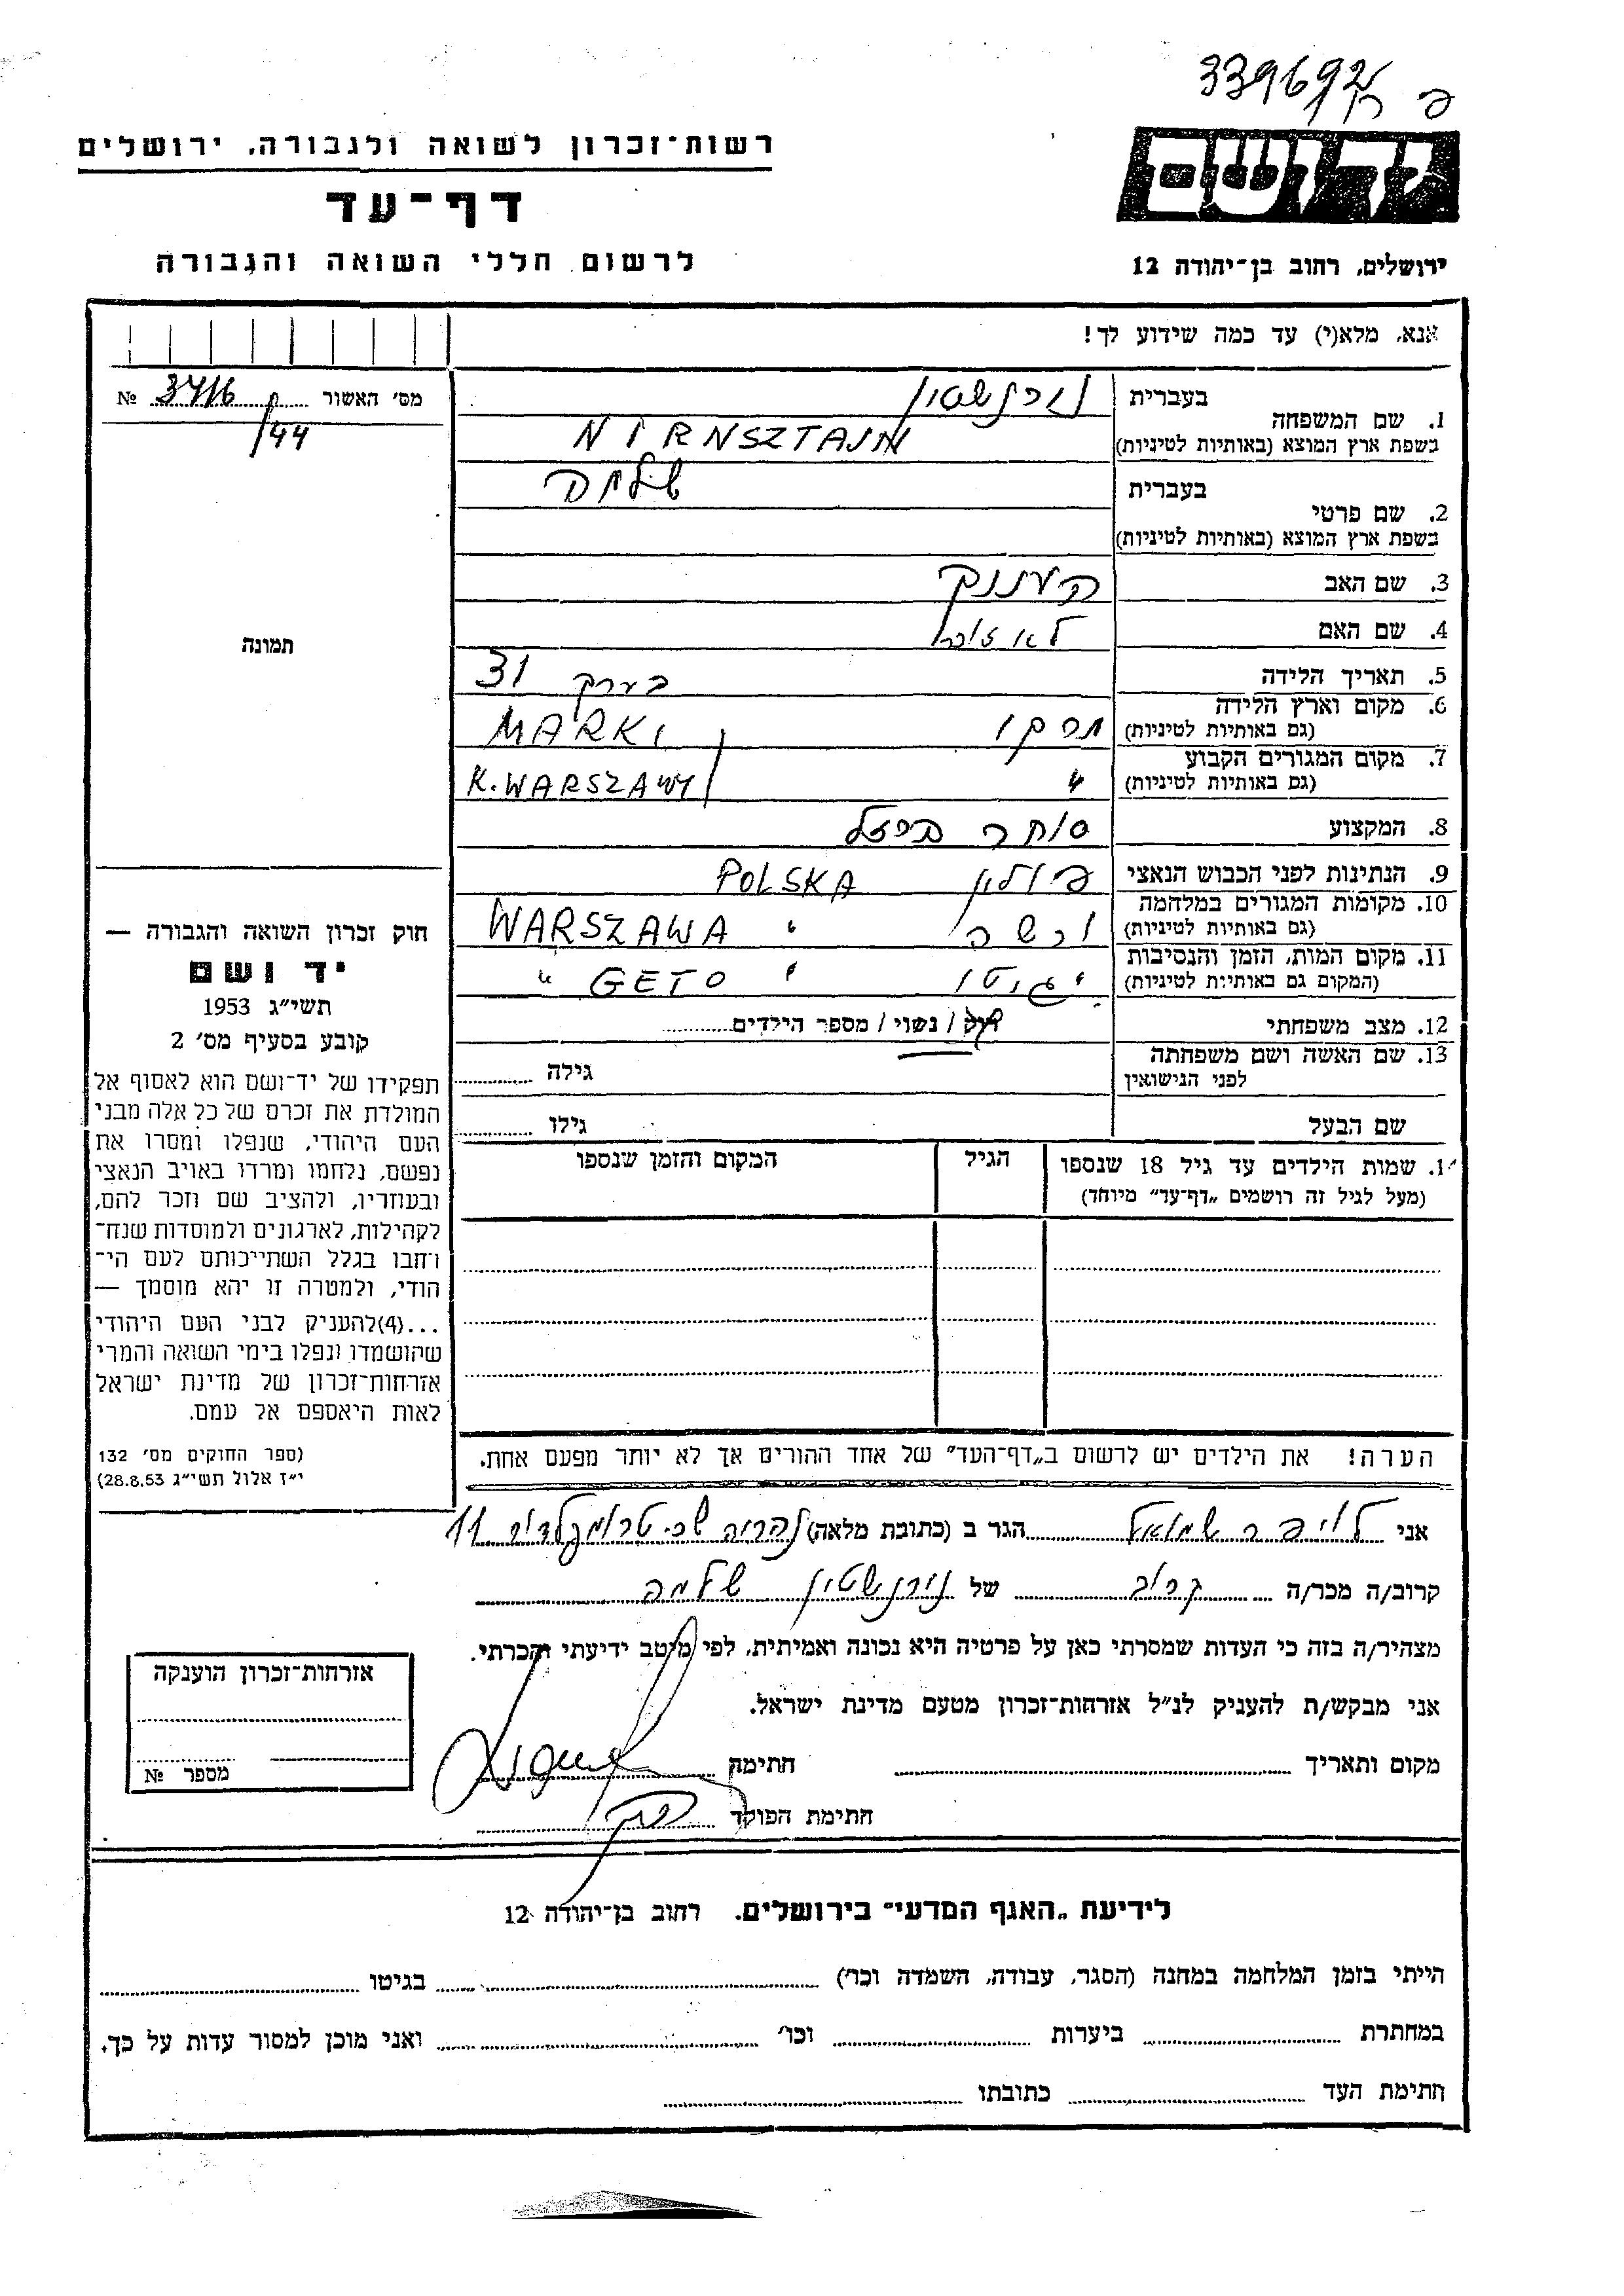 339692
רשות-זכרון לשואה ולגבורה, ירושלים
יד ושם
דף-עד
לרשום חללי השואה והגבורה
ירושלים, רחוב בן-יהודה 12
אנא, מלא(י) עד כמה שידוע לך!
מס׳ האשור 3716 №
44
1. שם המשפחה
בעברית נירנשטין
בשפת ארץ המוצא (באותיות לטיניות) NIRNSZTAJN
2. שם פרטי
בעברית שלמה
בשפת ארץ המוצא (באותיות לטיניות)
3. שם האב
4. שם האם לא זוכר
5. תאריך הלידה בערך 31
6. מקום וארץ הלידה
(גם באותיות לטיניות) מרקי MARKI
7. מקום המגורים הקבוע
(גם באותיות לטיניות) " K. WARSZAWY
8. המקצוע סוחר ברזל
9. הנתינות לפני הכבוש הנאצי פולין POLSKA
10. מקומות המגורים במלחמה
(גם באותיות לטיניות) ורשה " WARSZAWA
11. מקום המות, הזמן והנסיבות
(המקום גם באותיות לטיניות) גיטו " GETO "
12. מצב משפחתי רוק / נשוי / מספר הילדים
13. שם האשה ושם משפחתה
לפני הנישואין
גילה
שם הבעל
גילו
תמונה
חוק זכרון השואה והגבורה —
יד ושם
תשי״ג 1953
קובע בסעיף מס׳ 2
תפקידו של יד-ושם הוא לאסוף אל
המולדת את זכרם של כל אלה מבני
העם היהודי, שנפלו ומסרו את
נפשם, נלחמו ומרדו באויב הנאצי
ובעוזריו, ולהציב שם וזכר להם,
לקהילות, לארגונים ולמוסדות שנח-
רחבו בגלל השתייכותם לעם הי-
הודי, ולמטרה זו יהא מוסמך —
...(4)להעניק לבני העם היהודי
שהושמדו ונפלו בימי השואה והמרי
אזרחות-זכרון של מדינת ישראל
לאות היאספם אל עמם.
(ספר החוקים מס׳ 132
י״ז אלול תשי״ג 28.8.53)
1. שמות הילדים עד גיל 18 שנספו
(מעל לגיל זה רושמים „דף-עד״ מיוחד)
הגיל
המקום והזמן שנספו
הערה! את הילדים יש לרשום ב„דף-העד״ של אחד ההורים אך לא יותר מפעם אחת.
אני שמואל הגר ב (כתובת מלאה) נהריה שכ. טרומפלדור 11
קרוב/ה מכר/ה קרוב של נירנשטין שלמה
מצהיר/ה בזה כי העדות שמסרתי כאן על פרטיה היא נכונה ואמיתית, לפי מיטב ידיעתי והכרתי.
אני מבקש/ת להעניק לנ״ל אזרחות-זכרון מטעם מדינת ישראל.
מקום ותאריך
חתימה
חתימת הפוקד
אזרחות-זכרון הוענקה
מספר №
לידיעת „האגף המדעי״ בירושלים. רחוב בן-יהודה 12
הייתי בזמן המלחמה במחנה (הסגר, עבודה, השמדה וכו׳) בגיטו
במחתרת ביערות וכו׳ ואני מוכן למסור עדות על כך.
חתימת העד כתובתו